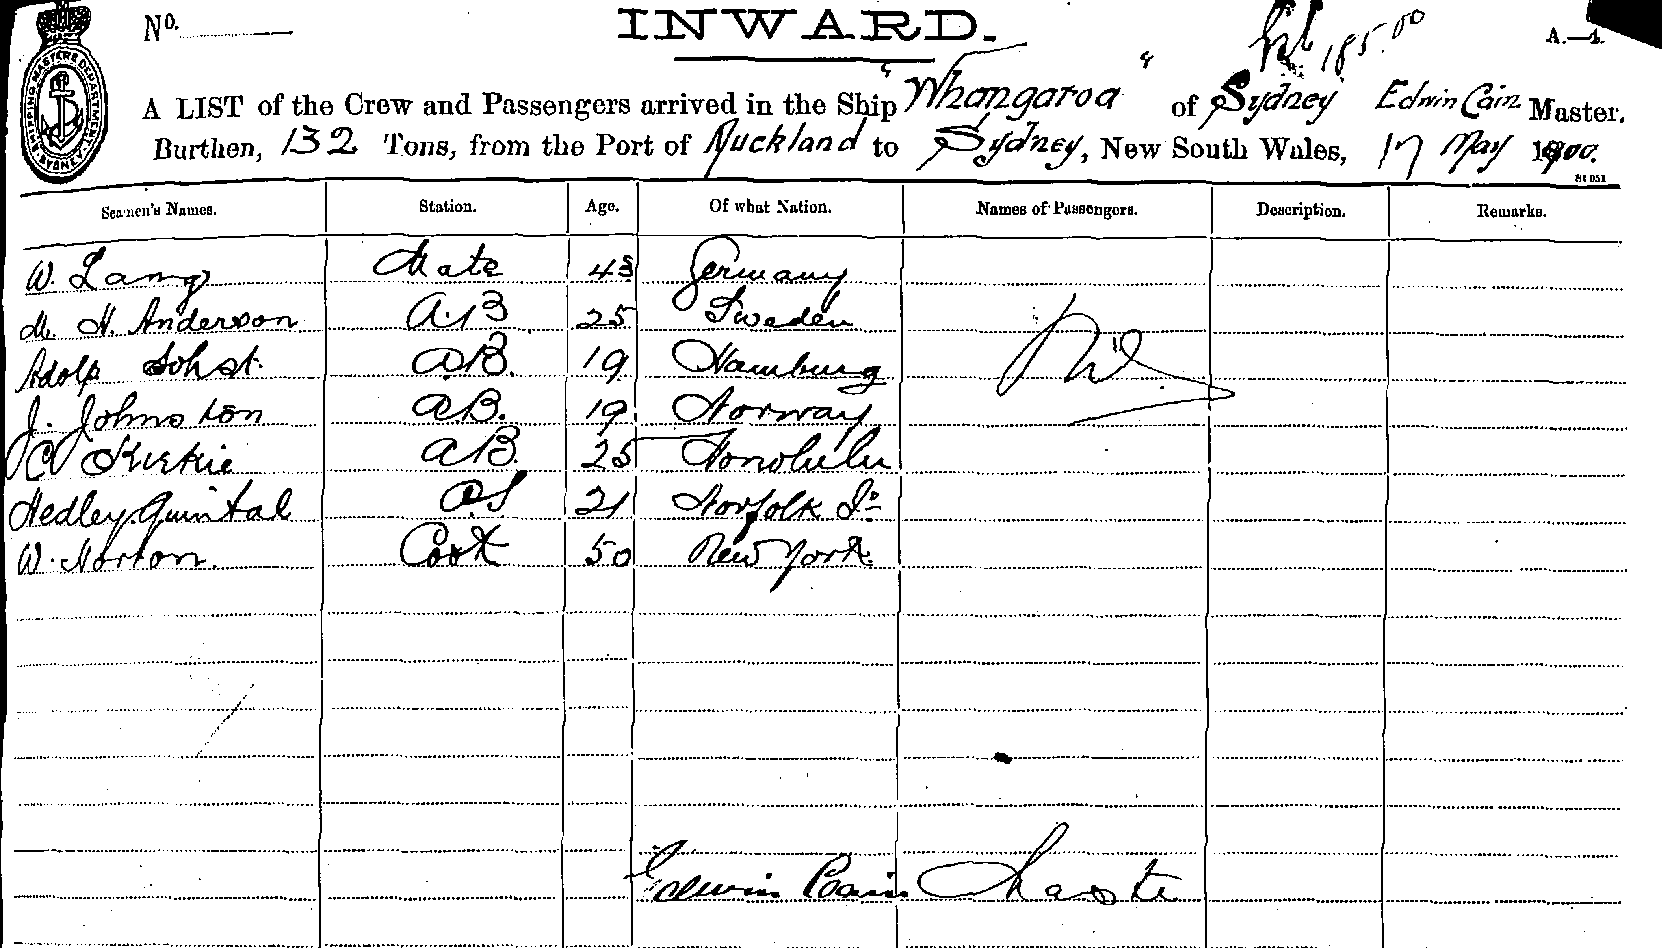 No.
INWARD.
A.—4.
A LIST of the Crew and Passengers arrived in the Ship "Whangaroa" of Sydney Edwin Cain Master.
Burthen, 132 Tons, from the Port of Auckland to Sydney, New South Wales, 17 May 1900.
Seamen's Names. Station. Age. Of what Nation. Names of Passengers. Description. Remarks.
W. Lang Mate 43 Germany
M. H. Anderson A.B 25 Sweden
Adolf Sohst. A.B. 19 Hamburg Nil
J. Johnston A.B. 19 Norway
C Kirkie A.B. 25 Honolulu
Hedley Quintal O.S 21 Norfolk Is
W. Norton. Cook 50 New York.
Edwin Cain Master